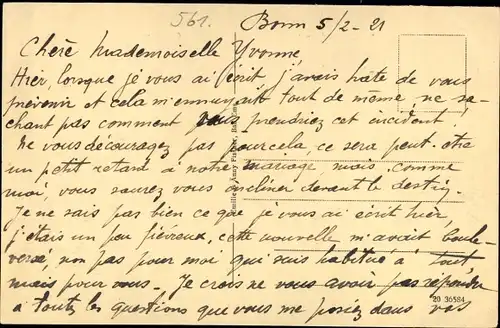 561.
Bonn 5/2-21
Chère Mademoiselle Yvonne,
Hier, lorsque je vous ai écrit j'avais hate de vous
prévenir et cela m'ennuyait tout de même, ne sa-
chant pas comment vous prendriez cet incident,
ne vous découragez pas pour cela, ce sera peut-être
un petit retard à notre mariage, mais comme
moi, vous saurez vous incliner devant le destin.
Je ne sais pas bien ce que je vous ai écrit hier,
j'étais un peu fiévreux, cette nouvelle m'avait boule-
versé, non pas pour moi qui suis habitué à tout,
mais pour vous. Je crois ne vous avoir pas répondu
à toutes les questions que vous me posiez dans vos
20 36584